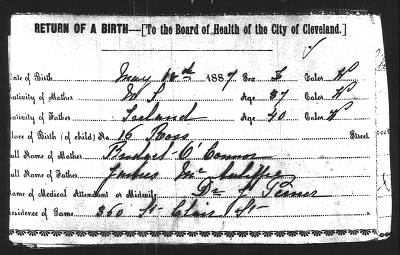 RETURN OF A BIRTH—[To the Board of Health of the City of Cleveland.]
Date of Birth May 1887 Sex F Color W
Nativity of Mother U S Age 37 Color W
Nativity of Father Ireland Age 40 Color W
Place of Birth (of child) No. 15 Ross Street
Full Name of Mother Bridget O'Connor
Full Name of Father James McAuliffe
Name of Medical Attendant or Midwife Dr
Residence of Same 350 St Clair St